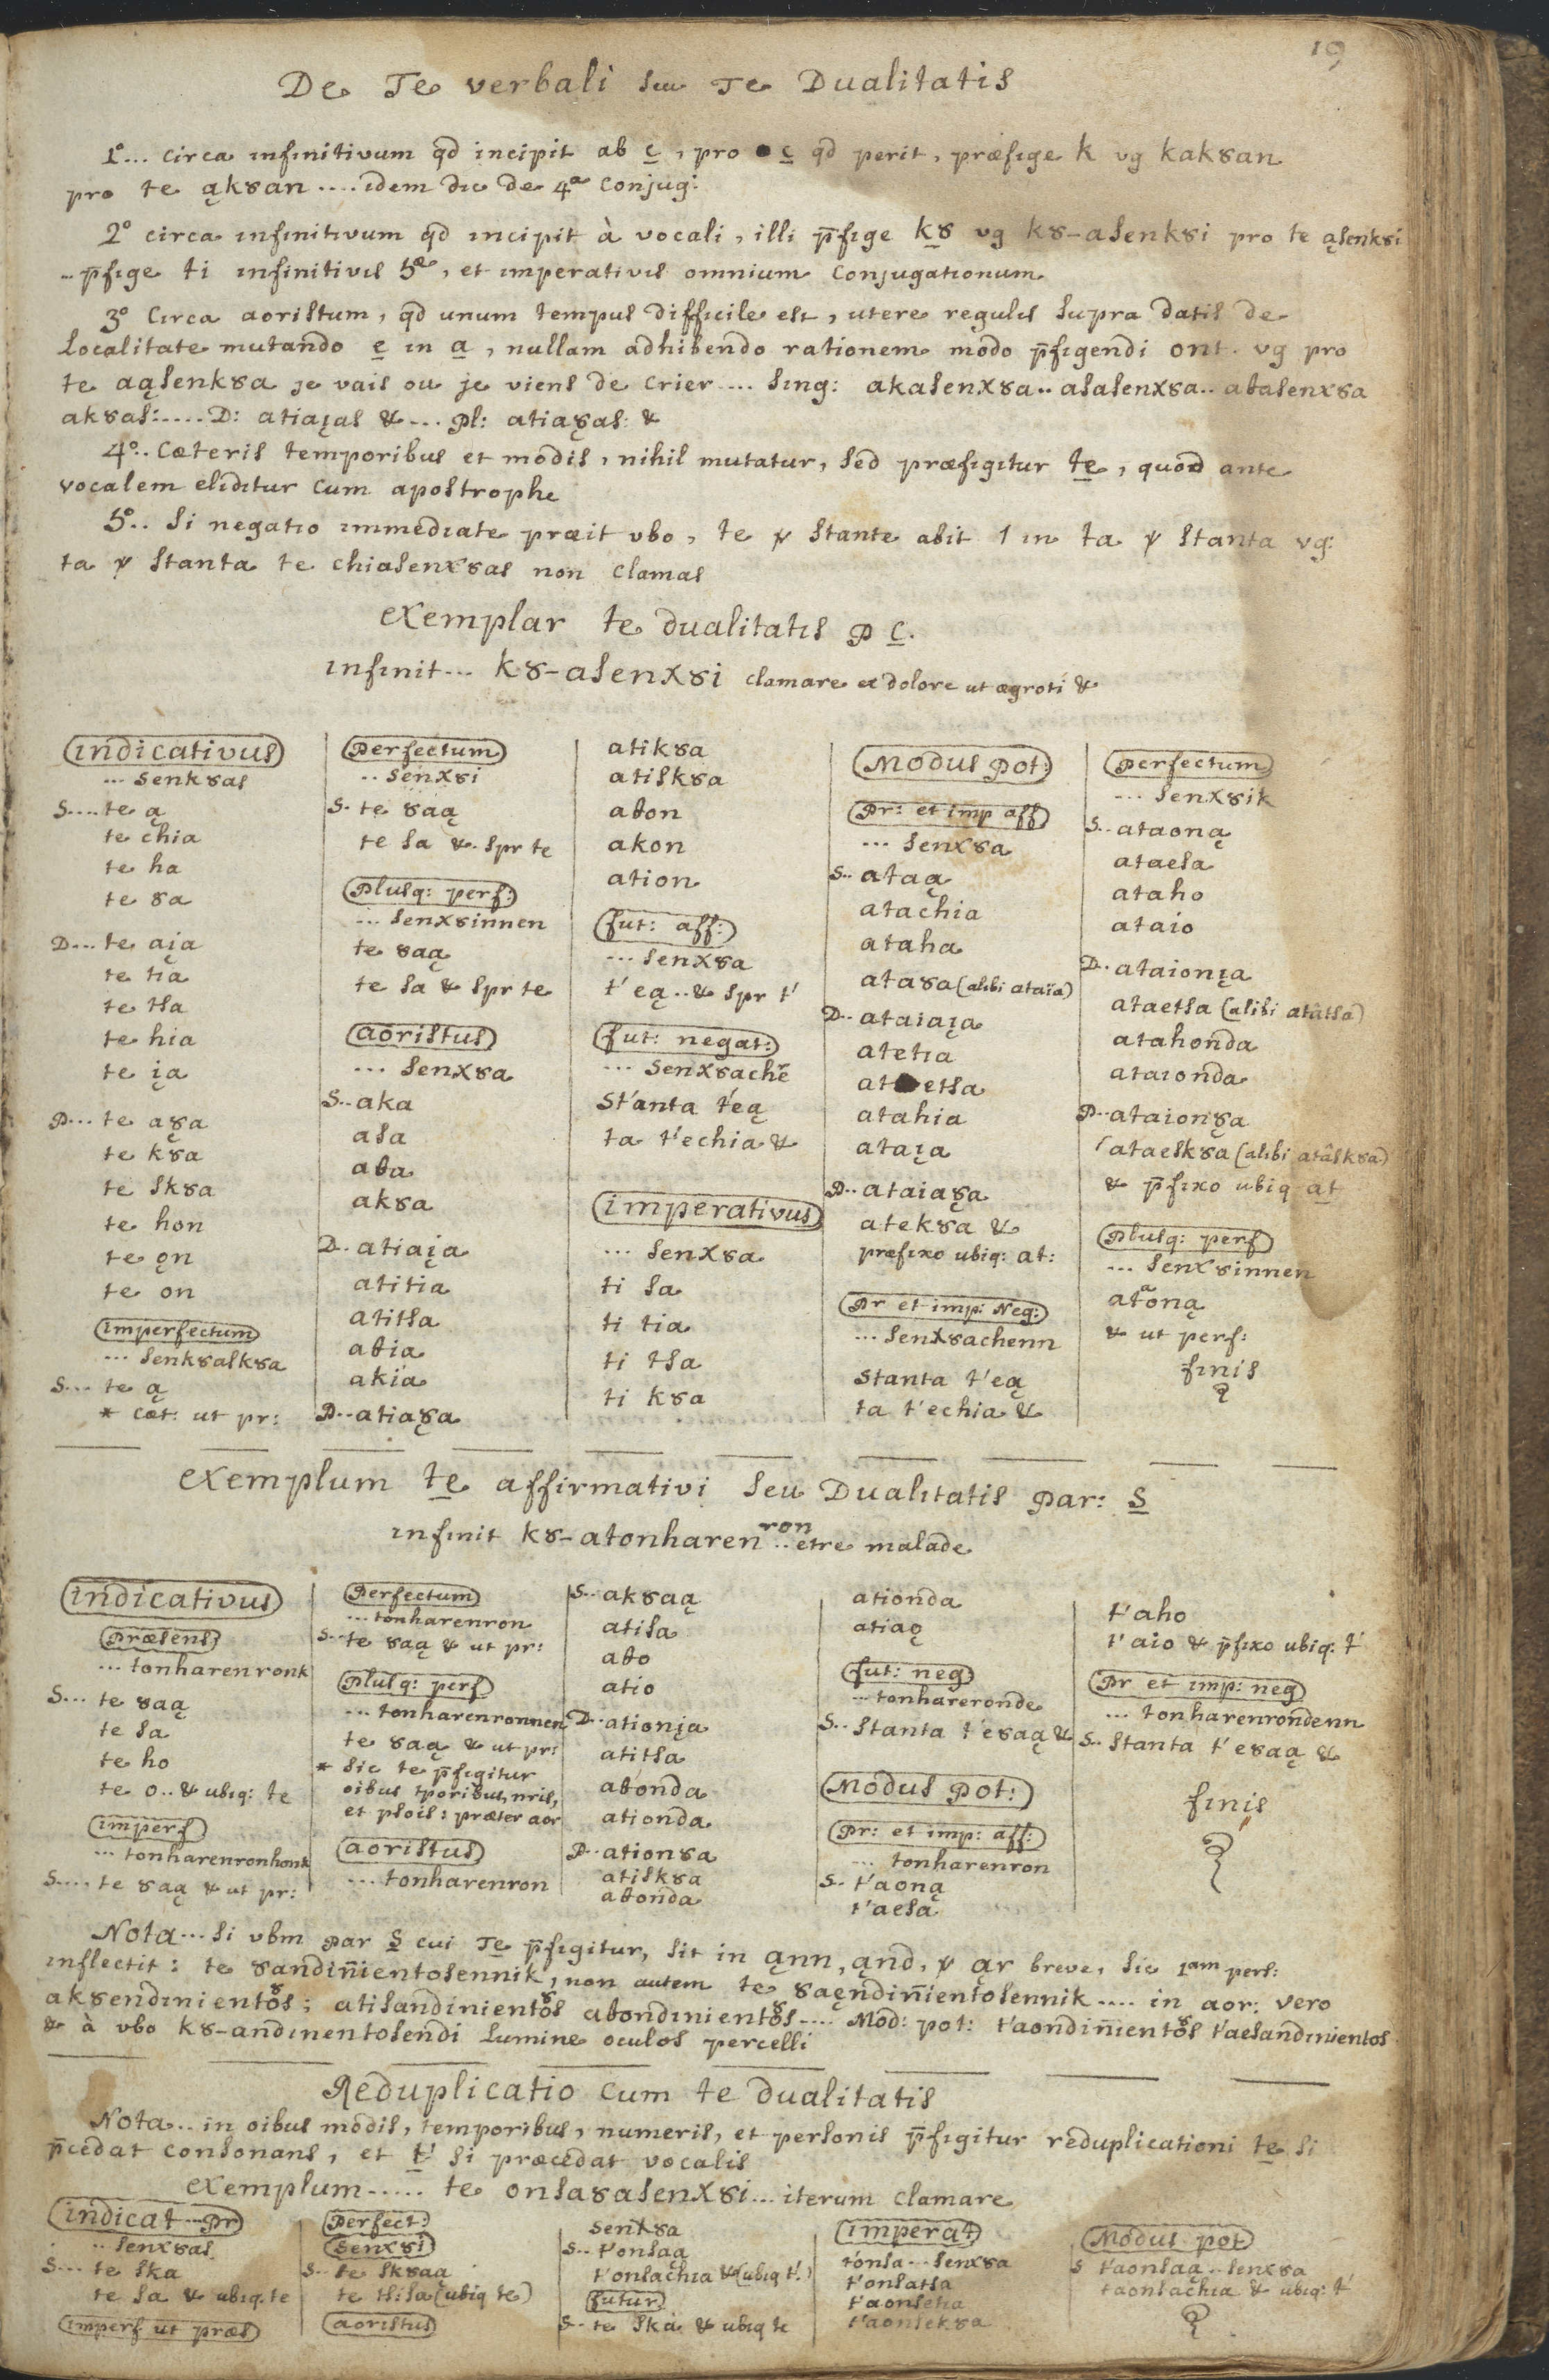 19
De Te verbali seu Te Dualitatis
1º... circa infinitivum qd incipit ab c̲, pro c̲ qd perit, præfige k vg kakȣan
pro te ąkȣan .... idem dic de 4ª conjug:
2º circa infinitivum qd incipit à vocali, illi p̄fige kȣ vg kȣ-asenkȣi pro te ąsenkȣi
.. p̄fige ti infinitivis 5æ, et imperativis omnium conjugationum
3º Circa aoristum, qd unum tempus difficile est, utere regulis supra datis de
localitate mutando e̲ in a̲, nullam adhibendo rationem modo p̄figendi ont. vg pro
te aąsenkȣa je vais ou je viens de crier .... sing: akasenxȣa.. asasenxȣa.. aɵasenxȣa
akȣas:.....D: atiaįas &... Pl: atiaȣ̨as: &
4º.. Cæteris temporibus et modis, nihil mutatur, sed præfigitur te̲, quod ante
vocalem eliditur cum apostrophe
5º.. Si negatio immediate præit vbo, te ꝟ stante abit 1 in ta ꝟ stanta vg:
ta ꝟ stanta te chiasenxȣas non clamas
exemplar te dualitatis P C̲.
infinit... kȣ-asenxȣi clamare ex dolore ut ægroti &
indicativus
... senkȣas
S.... te ą
te chia
te ha
te ȣa
D... te aįa
te tia
te tsa
te hia
te įa
P... te aȣ̨a
te kȣa
te skȣa
te hon
te ǫn
te on
imperfectum
... senkȣaskȣa
S... te ą
* cæt: ut pr:
Perfectum
.. senxȣi
S. te ȣaą
te sa &. spr te
Plusq: perf:
... senxȣinnen
te ȣaą
te sa & spr te
aoristus
... senxȣa
S.. aka
asa
aɵa
akȣa
D. atiaįa
atitia
atitsa
aɵia
akia
P.. atiaȣ̨a
atikȣa
atiskȣa
aɵon
akon
ation
fut: aff:
... senxȣa
t' eą..& spr t'
fut: negat:
... senxȣachē
St'anta t'eą
ta t'echia &
imperativus
... senxȣa
ti sa
ti tia
ti tsa
ti kȣa
Modus Pot:
Pr: et imp aff
... senxȣa
S.. ataą
atachia
ataha
ataȣa (alibi ataïa)
D.. ataiaįa
atetia
atetsa
atahia
ataįa
P.. ataiaȣ̨a
atekȣa &
præfixo ubiq: at:
Pr et imp: Neg:
... senxȣachenn
stanta t'eą
ta t'echia &
perfectum
... senxȣik
S.. ataoną
ataesa
ataho
ataio
D. ataionįa
ataetsa (alibi atâtsa)
atahonda
ataionda
P.. ataionȣ̨a
ataeskȣa (alibi atâskȣa)
& p̄fixo ubiq at
Plusq: perf
... senxȣinnen
ataoną
& ut perf:
finis
exemplum te̲ affirmativi seu Dualitatis Par: S̲
infinit kȣ-atonharenron .. etre malade
indicativus
Præsens
... tonharenronk
S... te ȣaą
te sa
te ho
te o.. & ubiq: te
imperf
... tonharenronhonk
S.... te ȣaą & ut pr:
Perfectum
... tonharenron
S.. te ȣaą & ut pr:
Plusq: perf
... tonharenronnen
te ȣaą & ut pr:
* sic te p̄figitur
oibus tporibus, nris,
et plois: præter aor
aoristus
... tonharenron
S.. akȣaą
atisa
aɵo
atio
D.. ationįa
atitsa
aɵonda
ationda
P.. ationȣa
atiskȣa
aɵonda
ationda
atiaǫ
fut: neg
... tonhareronde
S.. stanta t'eȣaą &
Modus Pot:
Pr: et imp: aff:
... tonharenron
S. t'aoną
t'aesa
t'aho
t'aio & p̄fixo ubiq. t'
Pr et imp: neg
... tonharenrondenn
S. stanta t'eȣaą &
finis
Nota... si vbm par S̲ cui Te̲ p̄figitur, sit in ąnn, ąnd, ꝟ ąr breve, sic 1am pers:
inflectit: te ȣandin̄ientosennik, non autem te ȣaęndin̄ientosennik .... in aor: vero
akȣendinientoȣs; atisandinientoȣs aɵondinientoȣs .... Mod: pot: t'aondin̄ientoȣs t'aesandinientos
& à vbo kȣ-andinentosendi lumine oculos percelli
Reduplicatio cum te dualitatis
Nota.. in oibus modis, temporibus, numeris, et personis p̄figitur reduplicationi te̲ si
p̄cedat consonans, et t̲' si præcedat vocalis
exemplum..... te onsaȣasenxȣi... iterum clamare
indicat... Pr
.. senxȣas
S... te ska
te sa & ubiq. te
imperf ut præs
Perfect:
senxȣi
S.. te skȣaą
te tsisa (ubiq te)
aoristus
senxȣa
S.. t'onsaą
t'onsachia & (ubiq t'.)
futur
S.. te ska & ubiq te
imperat
t'onsa... senxȣa
t'onsatsa
t'aonsetia
t'aonsekȣa
Modus pot
S t'aonsaą.. senxȣa
taonsachia & ubiq: t'